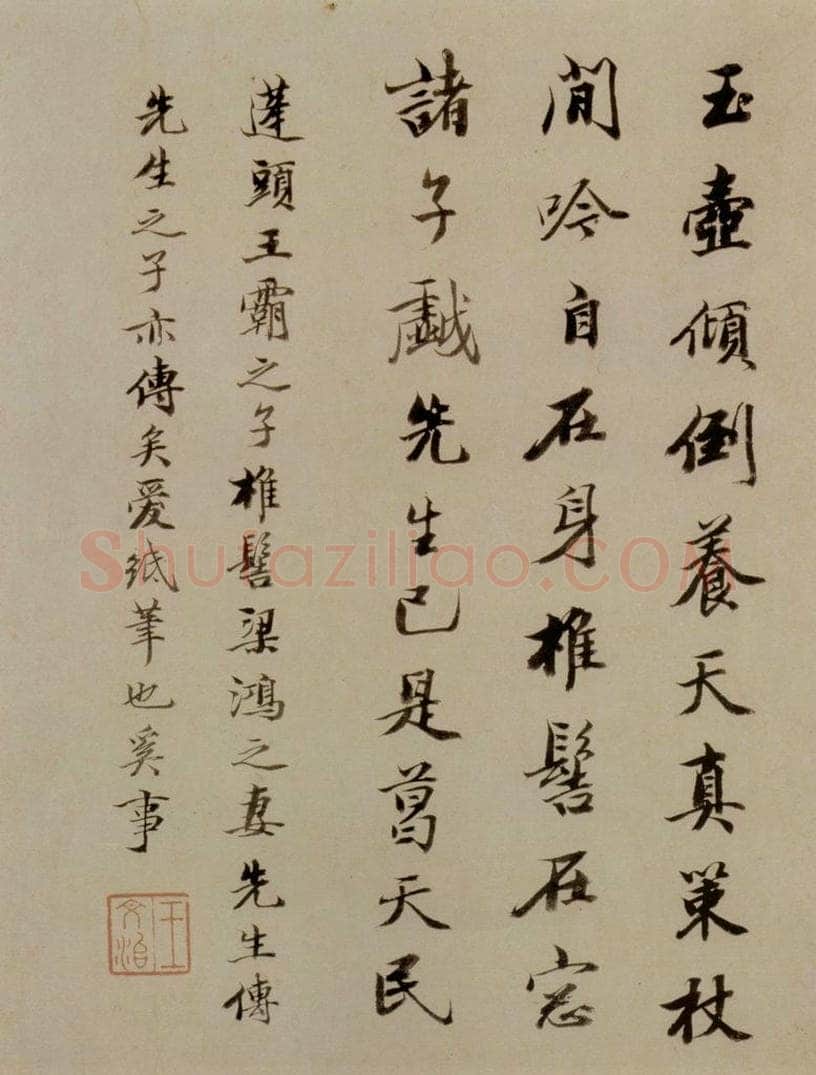 玉壺傾倒養天真策杖
閒吟自在身椎髻在窓
諸子戲先生已是葛天民
蓬頭王霸之子椎髻梁鴻之妻先生傳
先生之子亦傳矣愛紙筆也奚事
王文治
Shufaziliao.COM